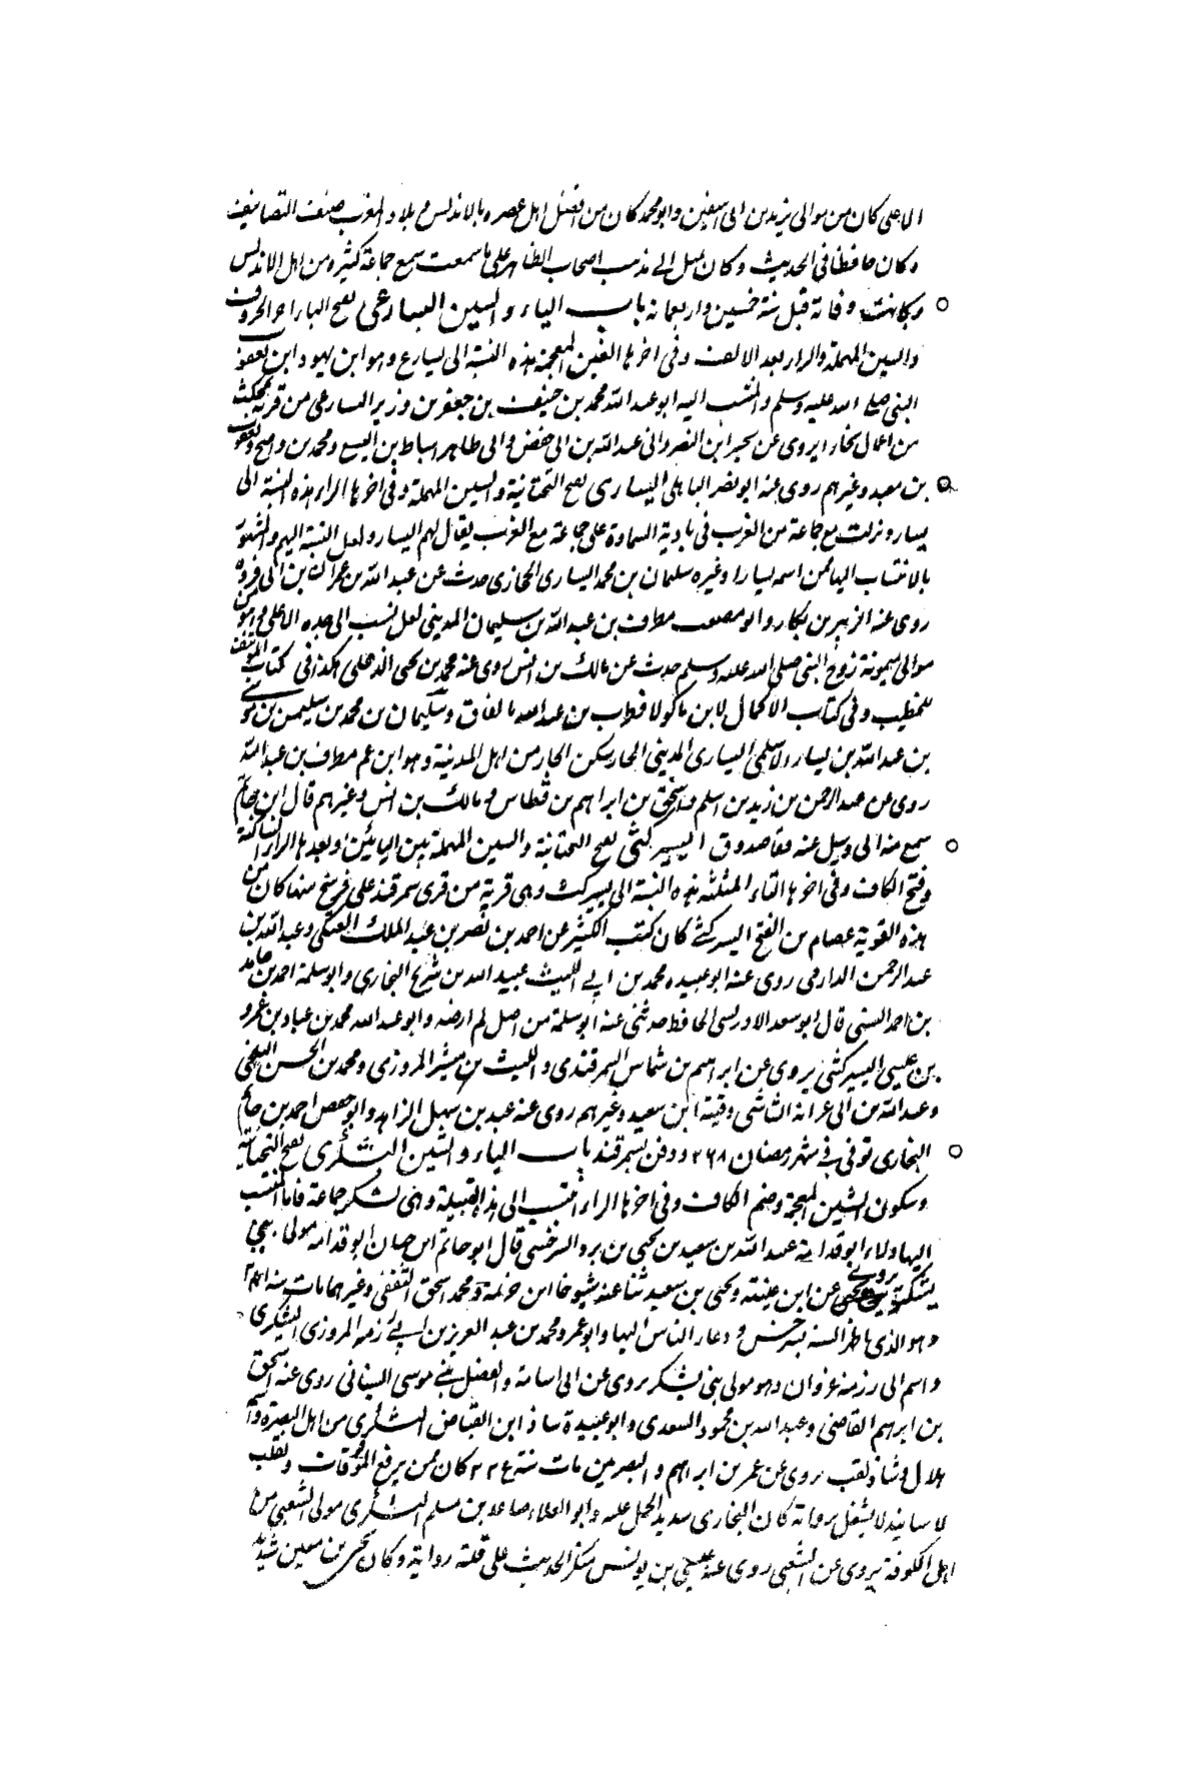 الاعلى كان من موالى يزيد بن ابى سفين وابو محمد كان من افضل اهل عصره بالاندلس و بلاد المغرب صنف التصانيف
وكان حافظا فى الحديث وكان يميل الى مذهب اصحاب الظاهر على ما سمعت سمع جماعة كثيرة من اهل الاندلس
وكانت وفاته قبل سنة خمسين واربعمائة باب الياء والسين اليسارغى بفتح الياء اخر الحروف
والسين المهملة والراء بعد الالف وفى اخرها الغين المعجمة هذه النسبة الى يسارغ وهو ابن يهود ابن يعقوب
النبى صلى الله عليه وسلم والمنتسب اليه ابو عبد الله محمد بن حنيف بن جعفر بن وزير اليسارغى من قرية
من اعمال بخارا يروى عن بحير ابن النضر وابى عبد الله بن ابى حفص و ابى طاهر اسباط بن اليسع ومحمد بن واضح ويعقوب
بن معبد وغيرهم روى عنه ابو نصر الباهلى اليسارى بفتح التحتانية والسين المهملة وفى اخرها الراء هذه النسبة الى
يسار ونزلت مع جماعة من العرب فى بادية السماوة على جماعة مع العرب يقال لهم اليسار ولعل النسبة اليهم والمشهور
بالانتساب اليها من اسمه يسارا وغيره سليمان بن محمد اليسارى الحجازى حدث عن عبد الله بن عمران بن ابى فروة
روى عنه الزبير بن بكار وابو مصعب مطرف بن عبد الله بن سليمان المدينى لعل نسب الى جده الاعلى وهو من
موالى ميمونة زوج النبى صلى الله عليه وسلم حدث عن مالك بن انس روى عنه محمد بن يحيى الذهلى هكذا فى كتاب المؤتنف
للخطيب وفى كتاب الاكمال لابن ماكولا مطرف بن عبد الله بالفاق وسليمان بن محمد بن سليمن بن موسى
بن عبد الله بن يسار الاسلمى اليسارى المدينى الجار سكن الجار من اهل المدينة وهو ابن عم مطرف بن عبد الله
روى عن عبد الرحمن بن زيد بن اسلم واسحق بن ابراهيم بن قسطاس و مالك بن انس وغيرهم قال ابن حاتم
سمع منه ابى وسئل عنه فقا صدوق اليسيركثى بفتح التحتانية والسين المهملة بين اليائين وبعدها الراء الساكنة
وفتح الكاف وفى اخرها الثاء المثلثة هذه النسبة الى يسيركث وهى قرية من قرى سمرقند على فرسخ منها كان من
هذه القوية عصام بن الفتح اليسيركثى كان كتب الكثير عن احمد بن نصر بن عبد الملك العتكى وعبد الله بن
عبد الرحمن الدارمى روى عنه ابو عبيده محمد بن ابى الليث عبيد الله بن شريح البخارى وابو سلمة احمد بن حامد
بن احمد السنى قال ابو سعد الادريسى الحافظ حدثنى عنه ابو سلمة من اصل لم ارضه وابو عبد الله محمد بن عباد بن عمرو
بن عيسى اليسيركثى يروى عن ابراهيم بن شماس السمرقندى و الليث بن مبشر المروزى ومحمد بن الحسن البلخى
وعبد الله بن ابى عرابة الشاشى وقتيبة ابن سعيد وغيرهم روى عنه عبد بن سهل الزاهد وابو حفص احمد بن حاتم
البخارى توفى فى شهر رمضان ٢٦٨ ودفن بسمرقند باب الياء والشين اليشكرى بفتح التحتانية
وسكون الشين المعجمة وضم الكاف وفى اخرها الراء نتسب الى هذا القبيلة وهى يشكر جماعة فاما المنتسب
اليها ولاء ابو قدامة عبد الله بن سعيد بن يحيى بن برد السرخسى قال ابو حاتم ابن حبان ابو قدامه مولى بنى
يشكر يروى عن ابن عيينة ويحيى بن سعيد ثنا عنه شيوخنا ابن خزيمة ومحمد اسحق الثقفى وغيرهما مات سنة ٢٤١
وهو الذى اظهر السنة بسرخس و دعا الناس اليها وابو عمرو محمد بن عبد العزيز بن ابى رزمه المروزى اليشكرى
واسم ابى رزمة غزوان وهو مولى بنى يشكر يروى عن ابى اسامة والفضل بن موسى السينانى روى عنه اسحق
بن ابرهيم القاضى وعبد الله بن محمود السعدى وابو عبيدة شاذ ابن الفياض اليشكرى من اهل البصرة واسمه
هلال و شاذ لقب يروى عن عمر بن ابراهيم والبصريين مات سنة ٢٢ كان ممن يرفع الموقوفات ويقلب
الاسانيد لا يشتغل بروايته كان البخارى شديد الحمل عليه وابو العلاء صاعد بن مسلم اليشكرى مولى الشعبى من
اهل الكوفة يروى عن الشعبى روى عنه عيسى بن يونس منكر الحديث على قلة روايته وكان يحيى بن معين شديد